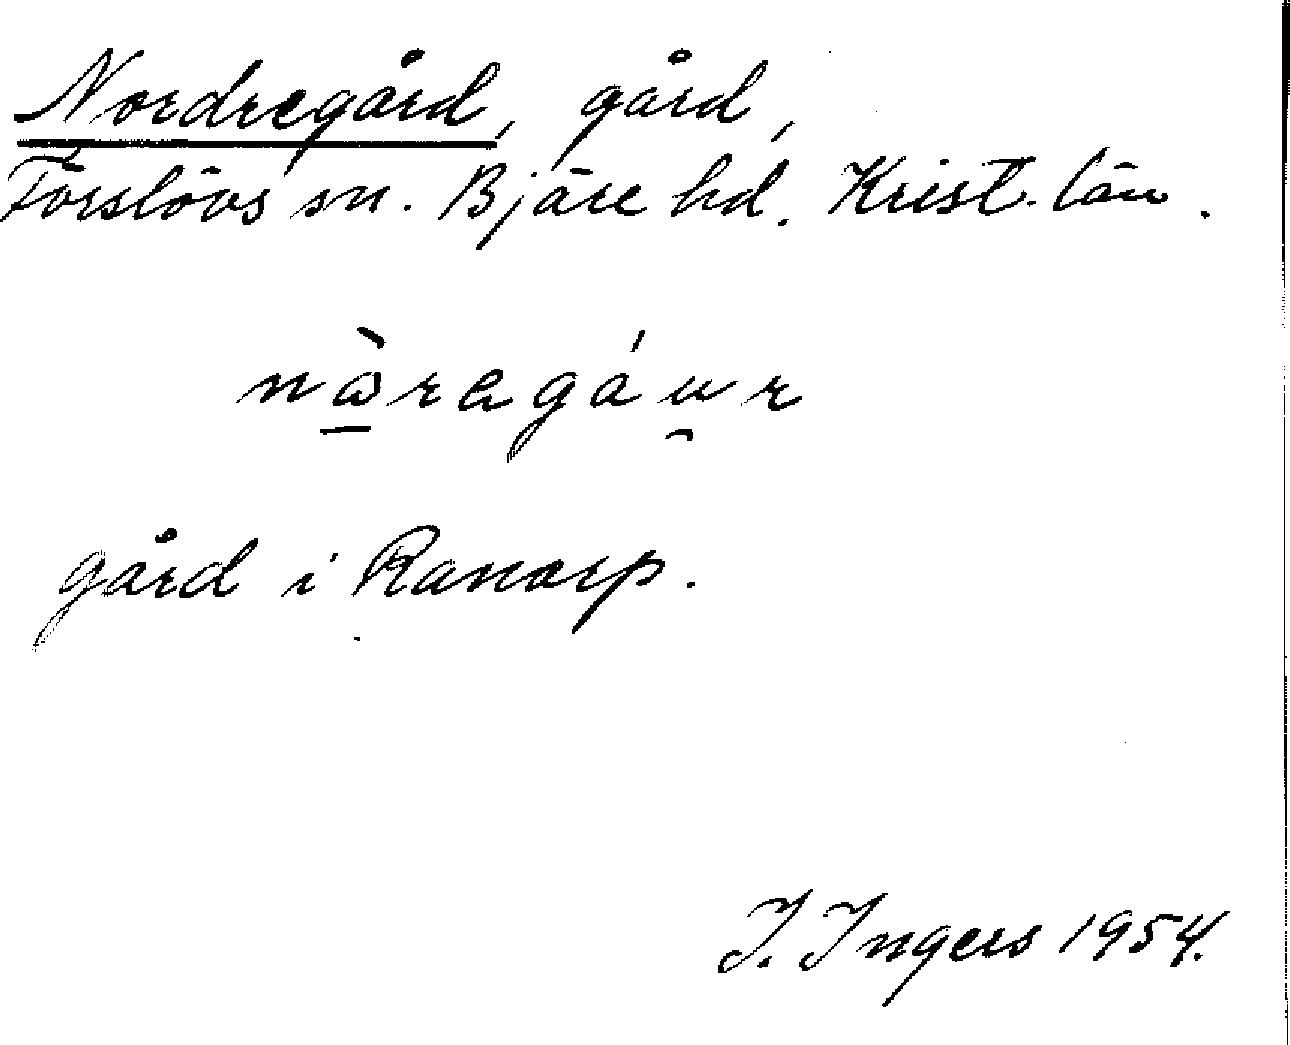 Nordregård, gård,
Förslövs sn. Bjäre hd. Krist. län.
nɷ̠̀ragáu̯r
gård i Ranarp.
I. Ingers 1954.